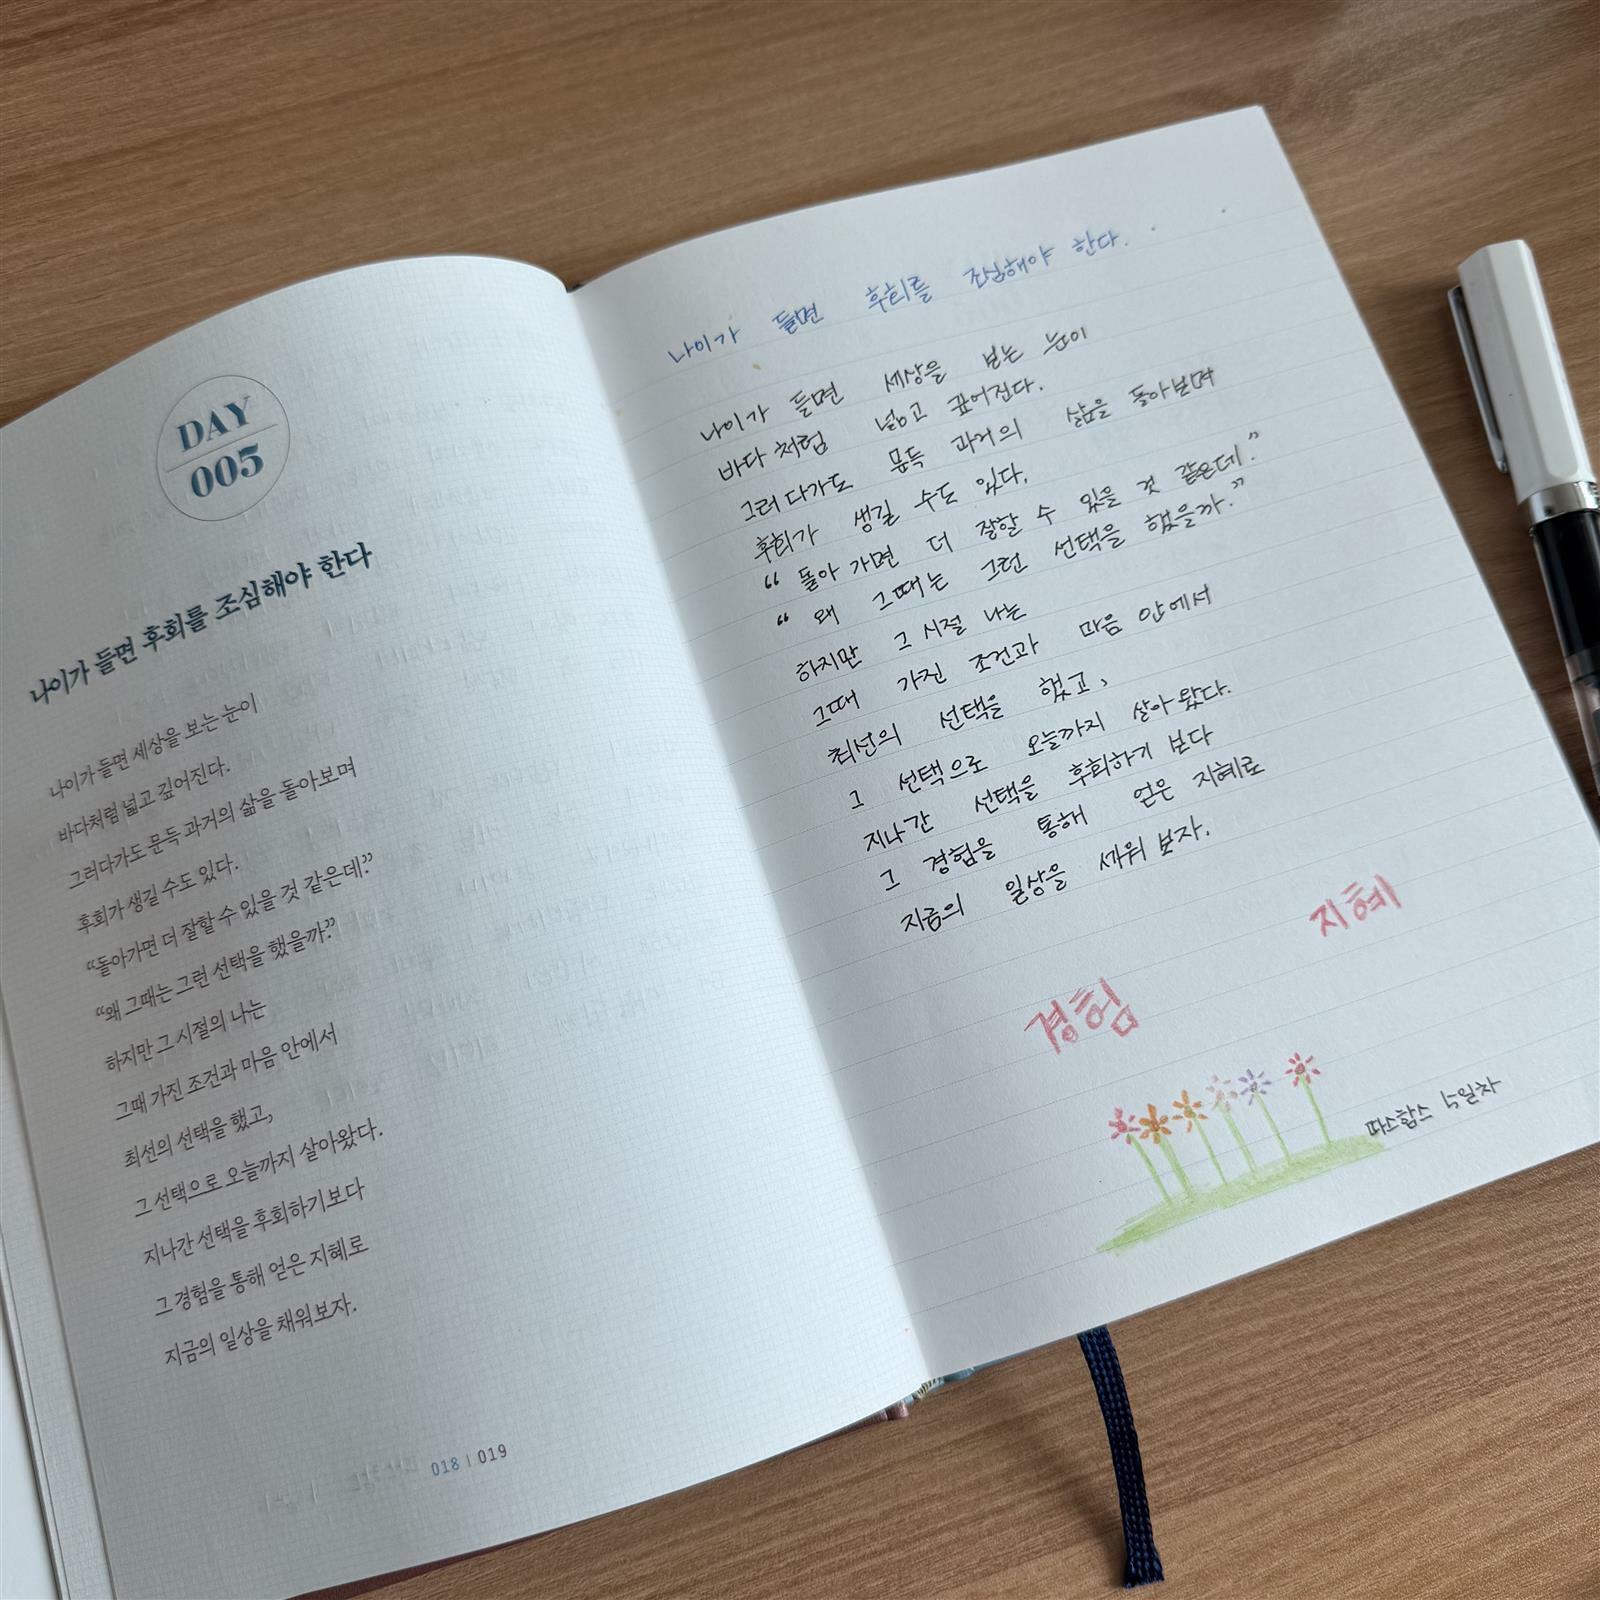 DAY
005
나이가 들면 후회를 조심해야 한다
나이가 들면 세상을 보는 눈이
바다처럼 넓고 깊어진다.
그러다가도 문득 과거의 삶을 돌아보며
후회가 생길 수도 있다.
“돌아가면 더 잘할 수 있을 것 같은데.”
“왜 그때는 그런 선택을 했을까.”
하지만 그 시절의 나는
그때 가진 조건과 마음 안에서
최선의 선택을 했고,
그 선택으로 오늘까지 살아왔다.
지나간 선택을 후회하기보다
그 경험을 통해 얻은 지혜로
지금의 일상을 채워보자.
018 | 019
나이가 들면 후회를 조심해야 한다.
나이가 들면 세상을 보는 눈이
바다 처럼 넓고 깊어진다.
그러다가도 문득 과거의 삶을 돌아보며
후회가 생길 수도 있다.
“ 돌아 가면 더 잘할 수 있을 것 같은데.”
“ 왜 그때는 그런 선택을 했을까.”
하지만 그 시절 나는
그때 가진 조건과 마음 안에서
최선의 선택을 했고,
그 선택으로 오늘까지 살아 왔다.
지나간 선택을 후회하기 보다
그 경험을 통해 얻은 지혜로
지금의 일상을 세워 보자.
지혜
경험
따스함스 5일차